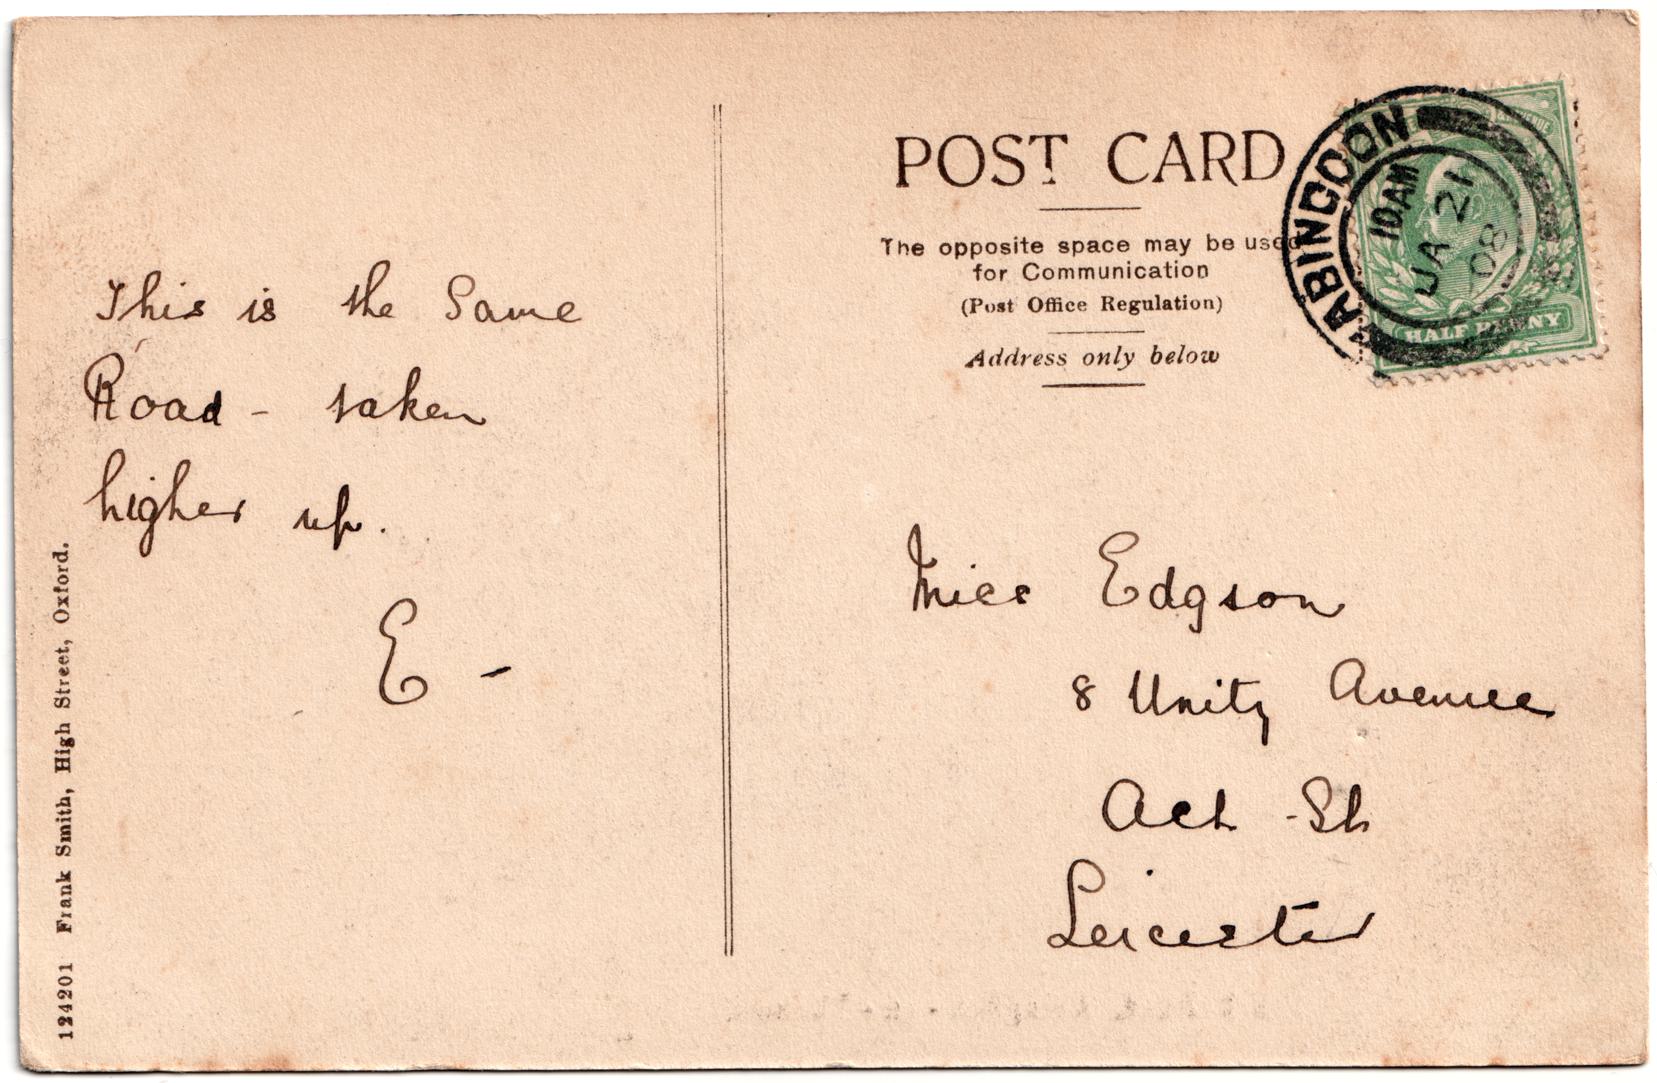 This is the Same
Road - taken
higher up.
E -
124201 Frank Smith, High Street, Oxford.
POST CARD
The opposite space may be used
for Communication
(Post Office Regulation)
Address only below
ABINGDON
10.AM
JA 21
08
HALF PENNY
Miss Edgson
8 Unity Avenue
Ach St
Leicester